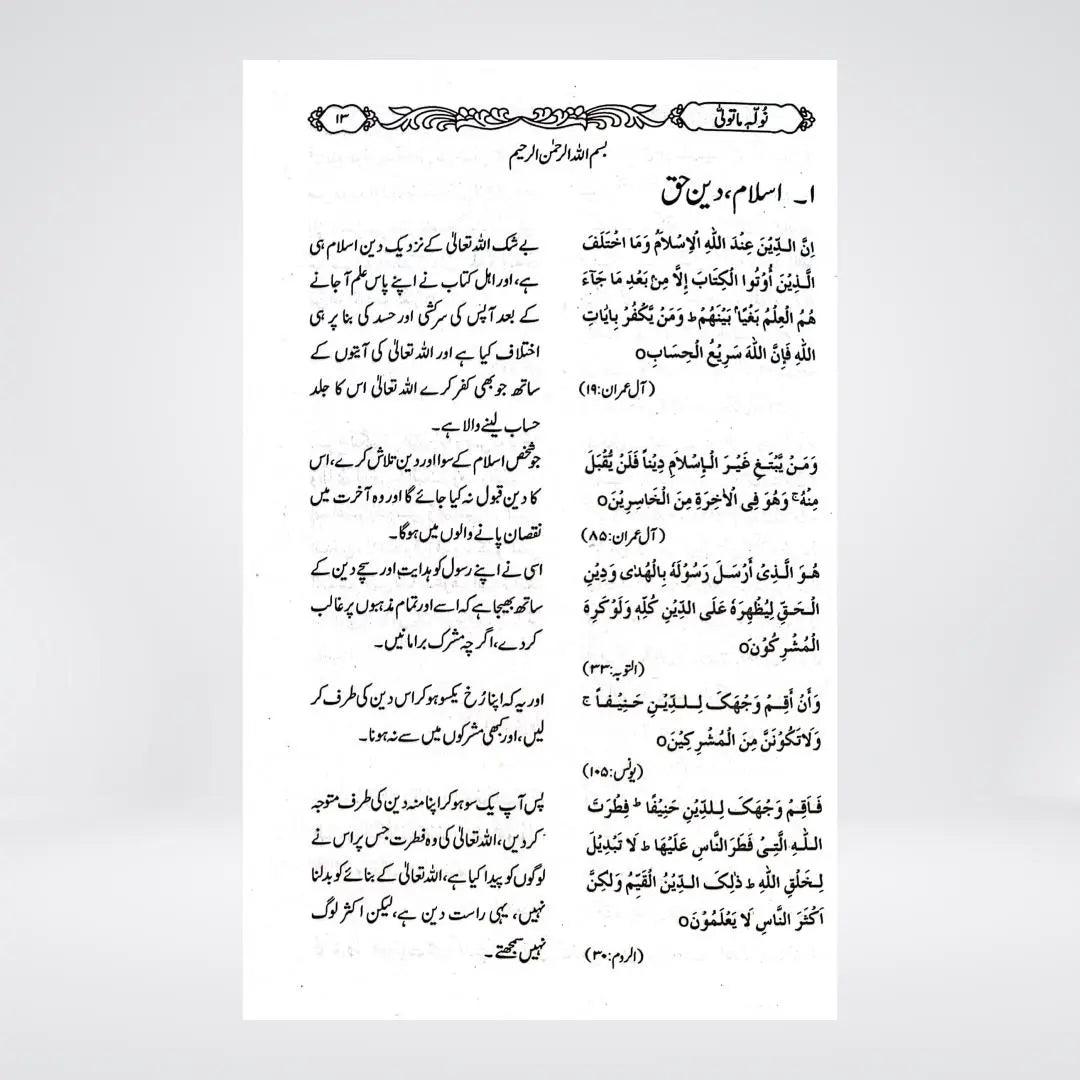 نُولِّہٖ ماتولّٰی
۱۳
بسم اللہ الرحمٰن الرحیم
۱۔ اسلام، دین حق
اِنَّ الـدِّیْنَ عِنْدَ اللّٰہِ الْاِسْلَامُ وَمَا اخْتَلَفَ
الَّـذِیْنَ أُوْتُوا الْکِتَابَ اِلَّا مِنْ بَعْدِ مَا جَآءَ
ھُمُ الْعِلْمُ بَغْیًا بَیْنَھُمْ ط وَمَنْ یَّکْفُرْ بِاٰیَاتِ
اللّٰہِ فَاِنَّ اللّٰہَ سَرِیْعُ الْحِسَابِ o
(آل عمران:۱۹)
بے شک اللہ تعالیٰ کے نزدیک دین اسلام ہی
ہے، اور اہل کتاب نے اپنے پاس علم آ جانے
کے بعد آپس کی سرکشی اور حسد کی بنا پر ہی
اختلاف کیا ہے اور اللہ تعالیٰ کی آیتوں کے
ساتھ جو بھی کفر کرے اللہ تعالیٰ اس کا جلد
حساب لینے والا ہے۔
وَمَـنْ یَّبْتَـغِ غَیْـرَ الْـاِسْلَامِ دِیْناً فَلَنْ یُّقْبَلَ
مِنْہُ ۚ وَھُوَ فِی الْاٰخِرَۃِ مِنَ الْخَاسِرِیْنَ o
(آل عمران:۸۵)
جو شخص اسلام کے سوا اور دین تلاش کرے، اس
کا دین قبول نہ کیا جائے گا اور وہ آخرت میں
نقصان پانے والوں میں ہوگا۔
ھُـوَ الَّـذِیْ أَرْسَـلَ رَسُوْلَہٗ بِالْھُدٰی وَدِیْنِ
الْـحَـقِّ لِیُظْھِرَہٗ عَلَی الدِّیْنِ کُلِّہٖ وَلَوْ کَرِہَ
الْمُشْرِکُوْنَ o
(التوبہ:۳۳)
اسی نے اپنے رسول کو ہدایت اور سچے دین کے
ساتھ بھیجا ہے کہ اسے اور تمام مذہبوں پر غالب
کر دے، اگر چہ مشرک برا مانیں۔
وَأَنْ أَقِـمْ وَجْھَکَ لِـلـدِّیْـنِ حَنِیْـفـاً ۚ
وَلَاتَکُوْنَنَّ مِنَ الْمُشْرِکِیْنَ o
(یونس:۱۰۵)
اور یہ کہ اپنا رُخ یکسو ہو کر اس دین کی طرف کر
لیں، اور کبھی مشرکوں میں سے نہ ہونا۔
فَـاَقِـمْ وَجْھَکَ لِـلدِّیْنِ حَنِیْفًا ط فِطْرَتَ
الـلّٰـہِ الَّتِـیْ فَطَرَ النَّاسَ عَلَیْھَا ط لَا تَبْدِیْلَ
لِـخَلْقِ اللّٰہِ ط ذٰلِکَ الـدِّیْنُ الْقَیِّمُ وَلٰکِنَّ
اَکْثَرَ النَّاسِ لَا یَعْلَمُوْنَ o
(الروم:۳۰)
پس آپ یک سو ہو کر اپنا منہ دین کی طرف متوجہ
کر دیں، اللہ تعالیٰ کی وہ فطرت جس پر اس نے
لوگوں کو پیدا کیا ہے، اللہ تعالیٰ کے بنائے کو بدلنا
نہیں، یہی راست دین ہے، لیکن اکثر لوگ
نہیں سمجھتے۔